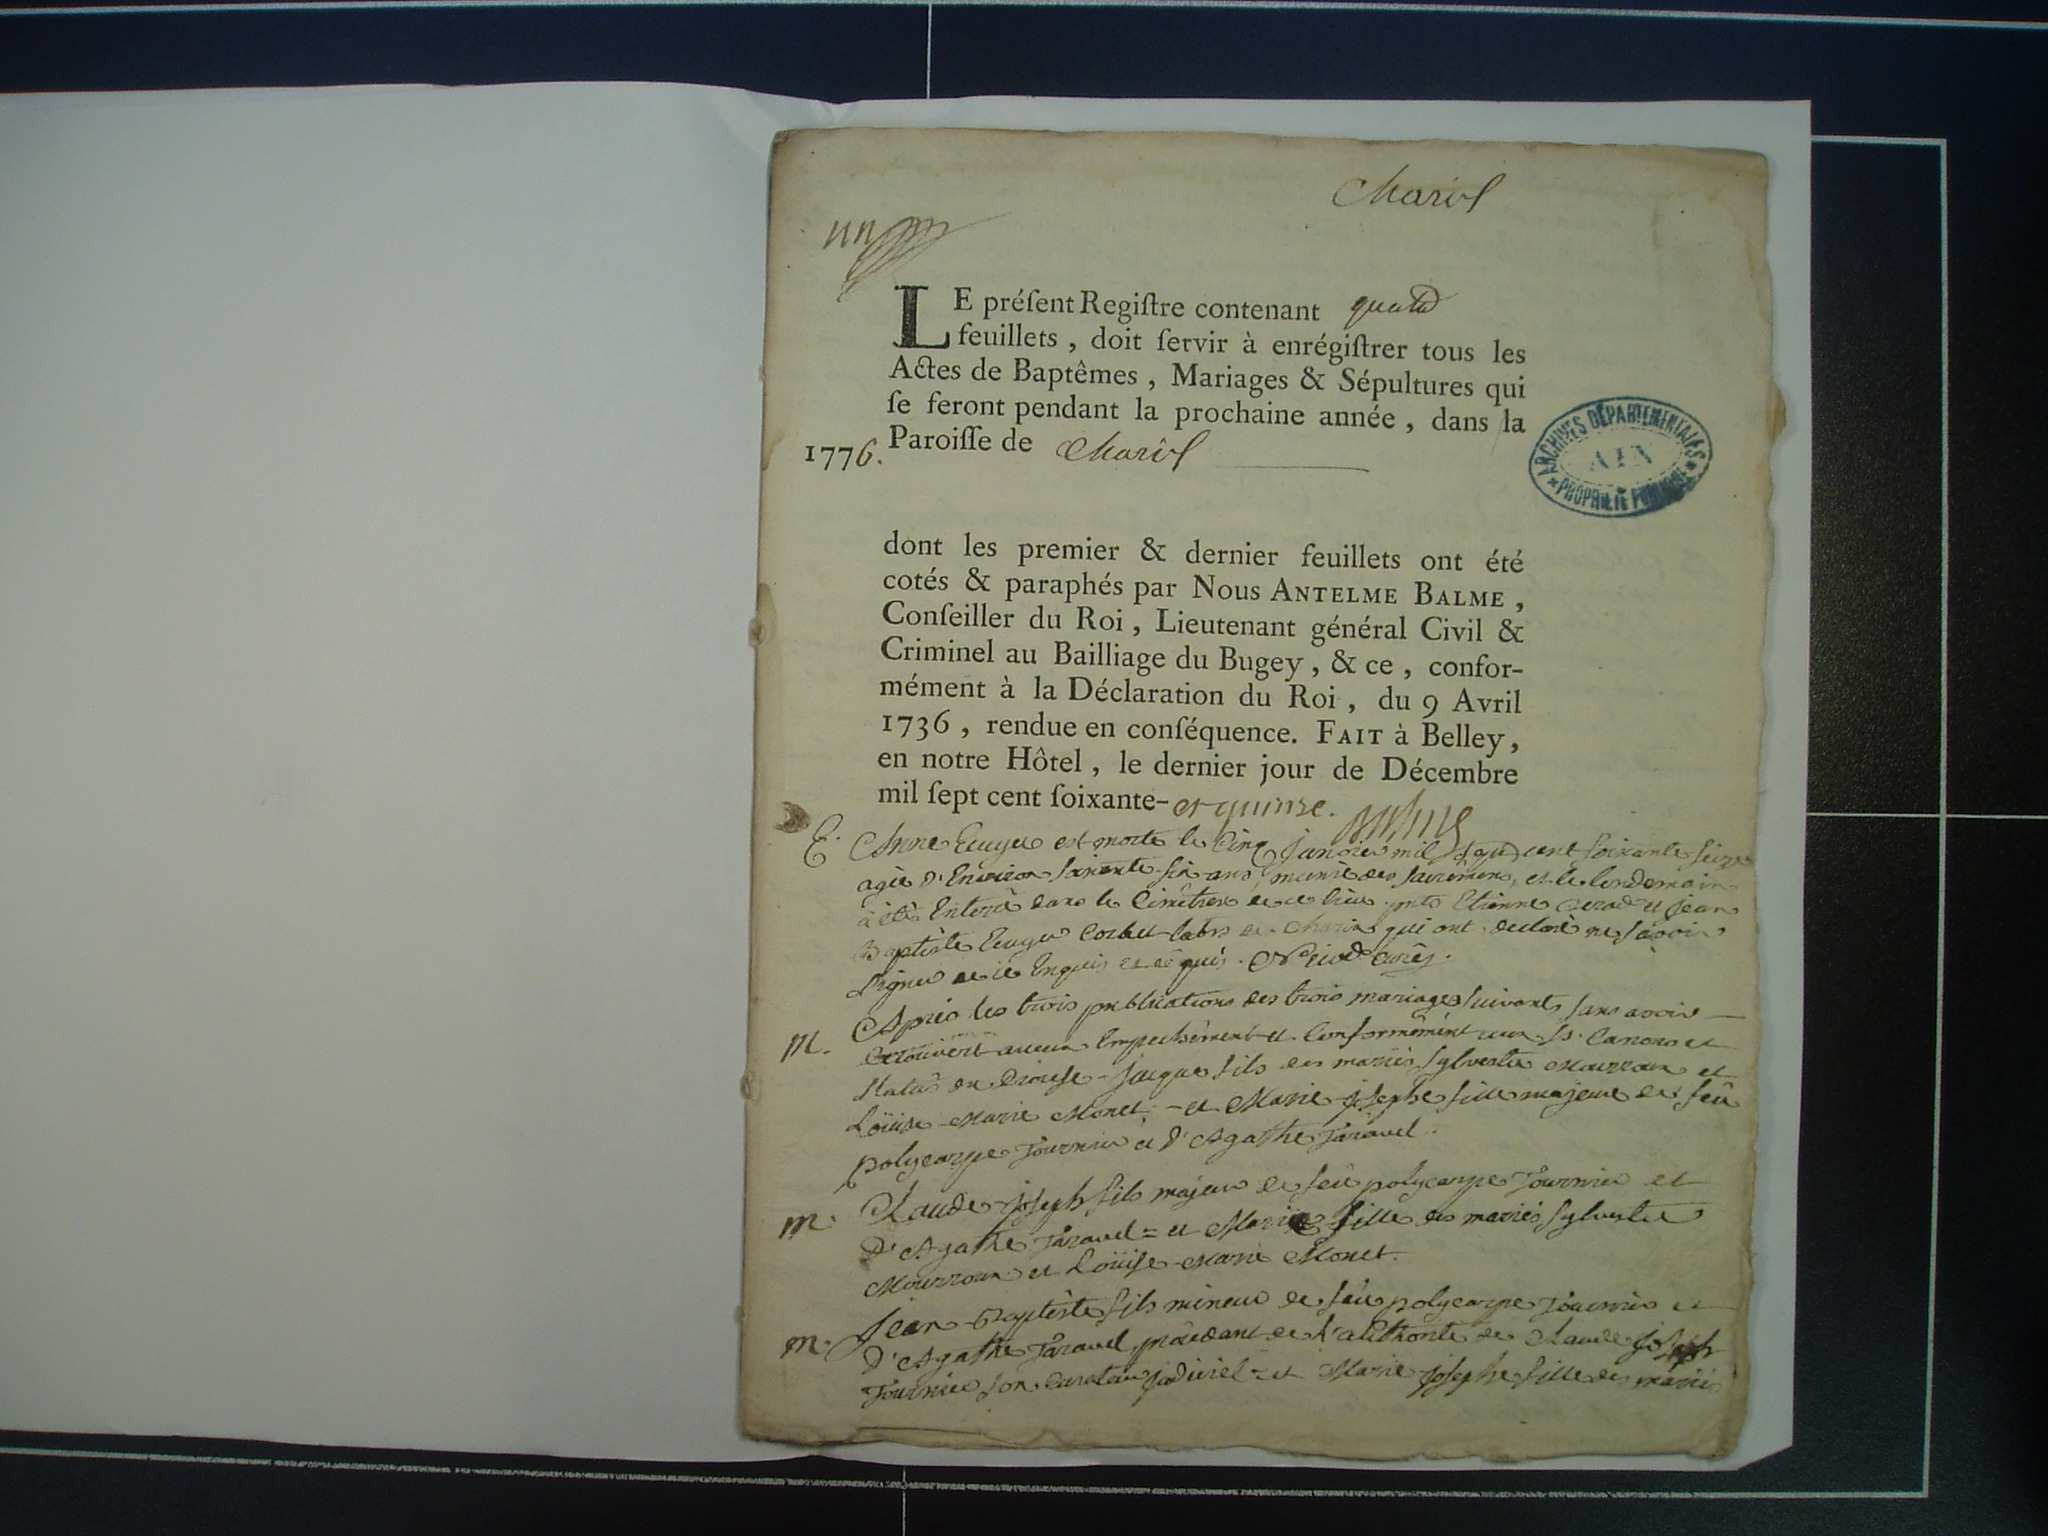 Charix
un
LE préſent Regiſtre contenant quatre
feuillets, doit ſervir à enrégiſtrer tous les
Actes de Baptêmes, Mariages & Sépultures qui
ſe feront pendant la prochaine année, dans la
1776. Paroiſſe de Charix
ARCHIVES DÉPARTEMENTALES
AIN
* PROPRIÉTÉ PUBLIQUE *
dont les premier & dernier feuillets ont été
cotés & paraphés par Nous ANTELME BALME,
Conſeiller du Roi, Lieutenant général Civil &
Criminel au Bailliage du Bugey, & ce, confor-
mément à la Déclaration du Roi, du 9 Avril
1736, rendue en conſéquence. FAIT à Belley,
en notre Hôtel, le dernier jour de Décembre
mil ſept cent ſoixante-et quinze.
E. Anne est morte le Cinq janvier mil sept cent soixante seize
agée d'Environ soixante-six ans, munie des sacrêmens, et le lendemain
à été Enterée dans le Cimêtiere de ce lieu Etienne et jean
Baptiste de Charix qui ont declaré ne sçavoir
signer de ce Enquis et requis. curé.
M. Après les trois publications des trois mariages suivants sans avoir
découvert aucun Empechêment et Conformêment aux Sts Canons et
du Diocese - jacque fils des mariés sylvestre Mourroux et
Loüise-Marie Monet, - et Marie-josephe fille majeure de feû
polycarpe Tournier et d'Agathe Taravel.
M. Claude-joseph fils majeur de feû polycarpe Tournier et
D'Agathe Taravel = et Marie fille des mariés sylvestre
Mourroux et Loüise-Marie Monet.
M. Jean-Baptiste fils mineur de feû polycarpe Tournier et
D'Agathe Taravel, procedant de l'authorité de Claude joseph
Tournier son Curateur judiciel = et Marie-josephe fille des mariés